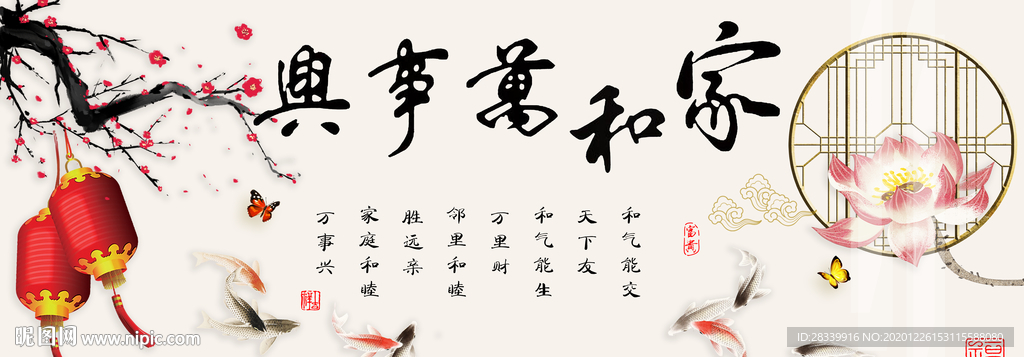 家和萬事興
和气能交
天下友
和气能生
万里财
邻里和睦
胜远亲
家庭和睦
万事兴
昵图网 www.nipic.com
ID:28339916 NO:20201226153115588080